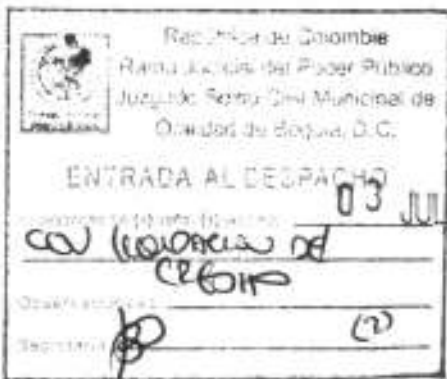 República de Colombia
Rama Judicial del Poder Público
Juzgado Civil Municipal de
Oralidad de Bogotá, D.C.
ENTRADA AL DESPACHO
03 JUL
con liquidacion de
credito
Observaciones
Secretaria (2)